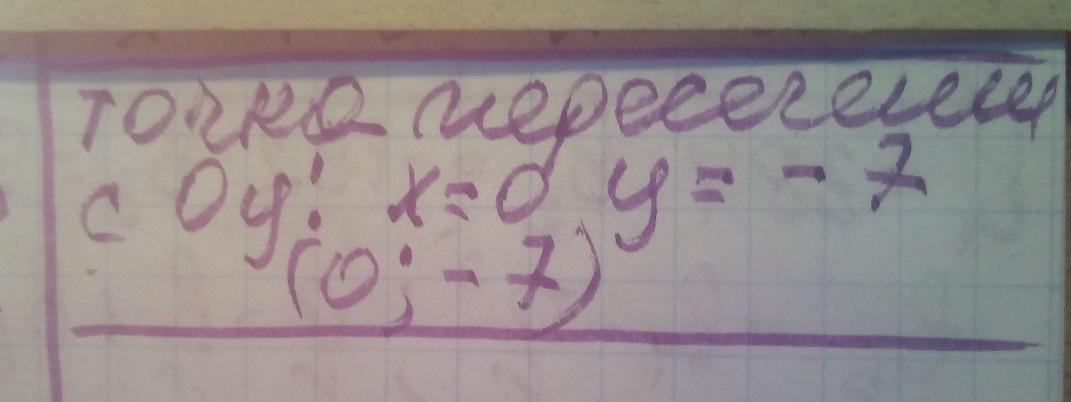 точка пересечения
с Oy: x=0 y=-7
(0;-7)